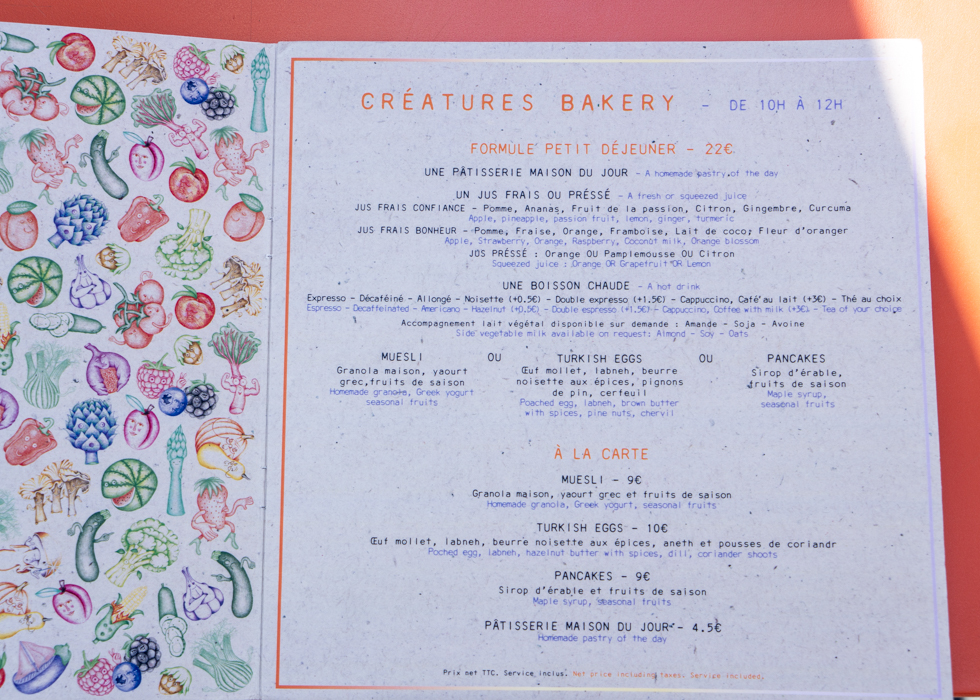 CRÉATURES BAKERY - DE 10H À 12H
FORMULE PETIT DÉJEUNER - 22€
UNE PÂTISSERIE MAISON DU JOUR - A homemade pastry of the day
UN JUS FRAIS OU PRÉSSÉ - A fresh or squeezed juice
JUS FRAIS CONFIANCE - Pomme, Ananas, Fruit de la passion, Citron, Gingembre, Curcuma
Apple, pineapple, passion fruit, lemon, ginger, turmeric
JUS FRAIS BONHEUR - Pomme, Fraise, Orange, Framboise, Lait de coco, Fleur d'oranger
Apple, Strawberry, Orange, Raspberry, Coconut milk, Orange blossom
JUS PRÉSSÉ : Orange OU Pamplemousse OU Citron
Squeezed juice : Orange OR Grapefruit OR Lemon
UNE BOISSON CHAUDE - A hot drink
Expresso - Décaféiné - Allongé - Noisette (+0,5€) - Double expresso (+1,5€) - Cappuccino, Café au lait (+3€) - Thé au choix
Expresso - Decaffeinated - Americano - Hazelnut (+0,5€) - Double espresso (+1,5€) - Cappuccino, Coffee with milk (+3€) - Tea of your choice
Accompagnement lait végétal disponible sur demande : Amande - Soja - Avoine
Side vegetable milk available on request: Almond - Soy - Oats
MUESLI OU TURKISH EGGS OU PANCAKES
Granola maison, yaourt Œuf mollet, labneh, beurre Sirop d'érable,
grec, fruits de saison noisette aux épices, pignons fruits de saison
Homemade granola, Greek yogurt de pin, cerfeuil Maple syrup,
seasonal fruits Poached egg, labneh, brown butter seasonal fruits
with spices, pine nuts, chervil
À LA CARTE
MUESLI - 9€
Granola maison, yaourt grec et fruits de saison
Homemade granola, Greek yogurt, seasonal fruits
TURKISH EGGS - 10€
Œuf mollet, labneh, beurre noisette aux épices, aneth et pousses de coriandr
Poched egg, labneh, hazelnut butter with spices, dill, coriander shoots
PANCAKES - 9€
Sirop d'érable et fruits de saison
Maple syrup, seasonal fruits
PÂTISSERIE MAISON DU JOUR - 4.5€
Homemade pastry of the day
Prix net TTC. Service inclus. Net price including taxes. Service included.